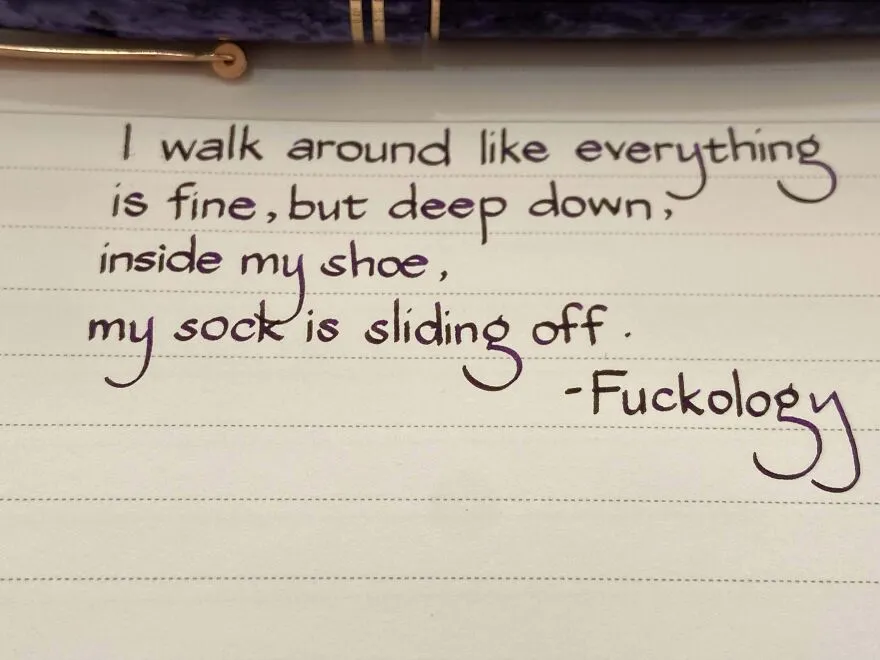 I walk around like everything
is fine, but deep down,
inside my shoe,
my sock is sliding off.
-Fuckology